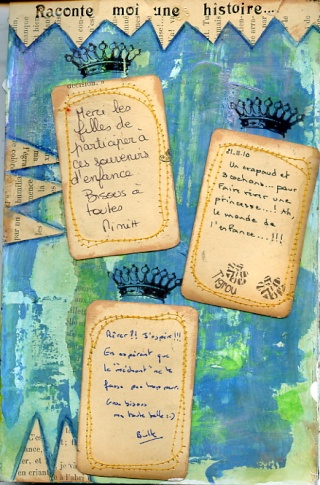 Raconte moi une histoire...
décision,
Merci les
filles de
participer à
ces souvenirs
d'enfance
Bisous à
toutes
21.8.10
Un crapaud et
3 cochons... pour
faire rêver une
princesse...! Ah,
le monde de
l'enfance...!!!
Tigrou
Rêver?! J'espère!!!
En espérant que
le "méchant" ne te
fasse pas trop peur.
Gros bisous
ma toute belle :-)